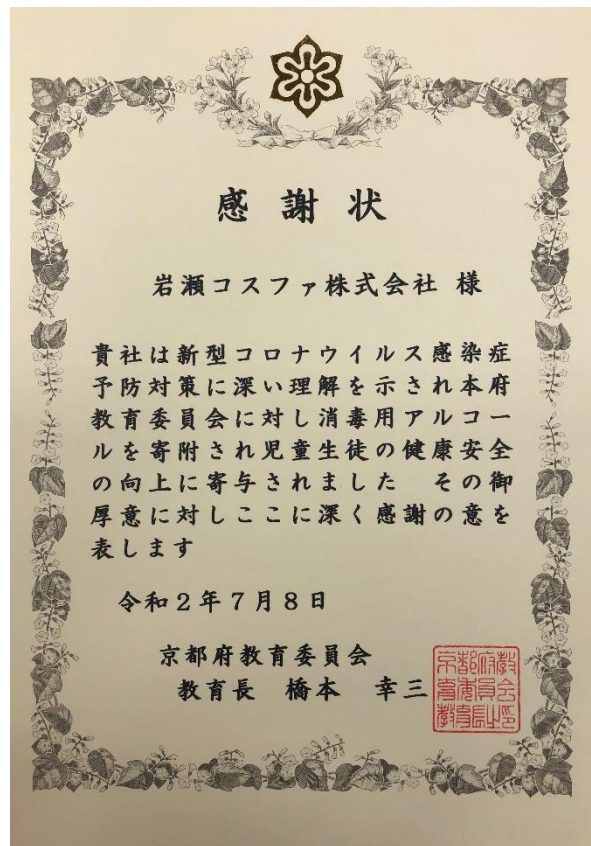 感謝状
岩瀬コスファ株式会社 様
貴社は新型コロナウイルス感染症
予防対策に深い理解を示され本府
教育委員会に対し消毒用アルコー
ルを寄附され児童生徒の健康安全
の向上に寄与されました　その御
厚意に対しここに深く感謝の意を
表します
令和2年7月8日
京都府教育委員会
教育長　橋本　幸三
京都府教
育委員会
教育長之印